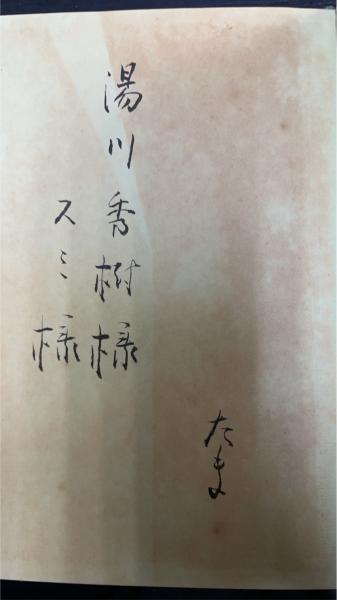 湯川秀樹様
スミ様
たま